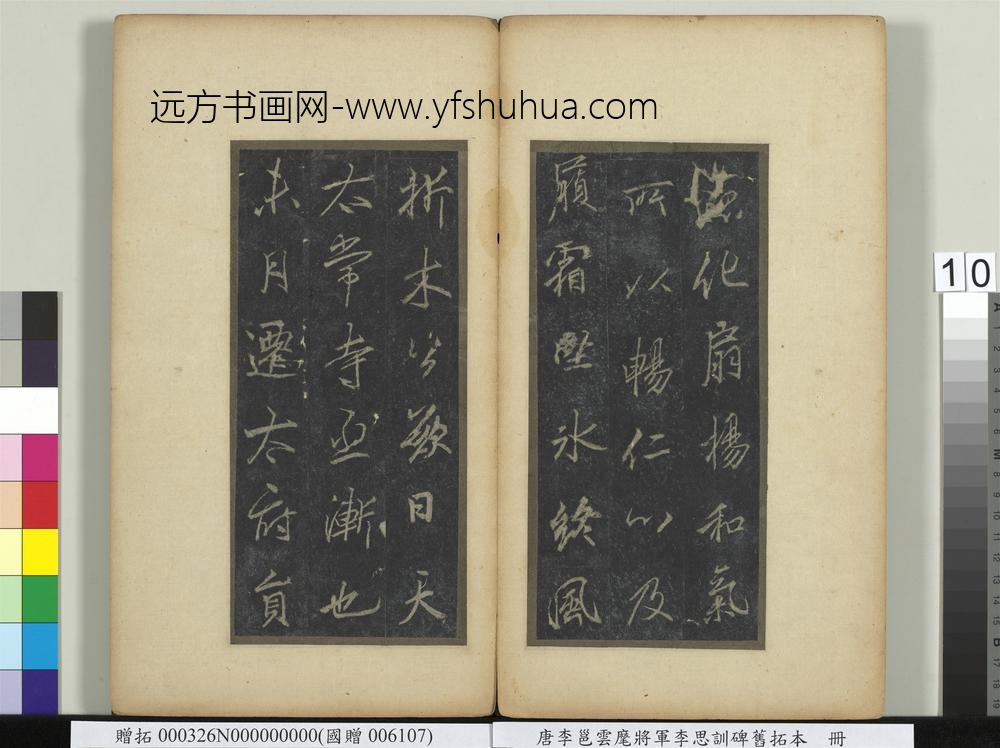 远方书画网-www.yfshuhua.com
化扇揚和氣
所以暢仁以及
履霜堅冰終風
折木公歎日天
太常寺丞漸也
未月遷太府員
10
贈拓 000326N000000000(國贈 006107)
唐李邕雲麾將軍李思訓碑舊拓本 冊